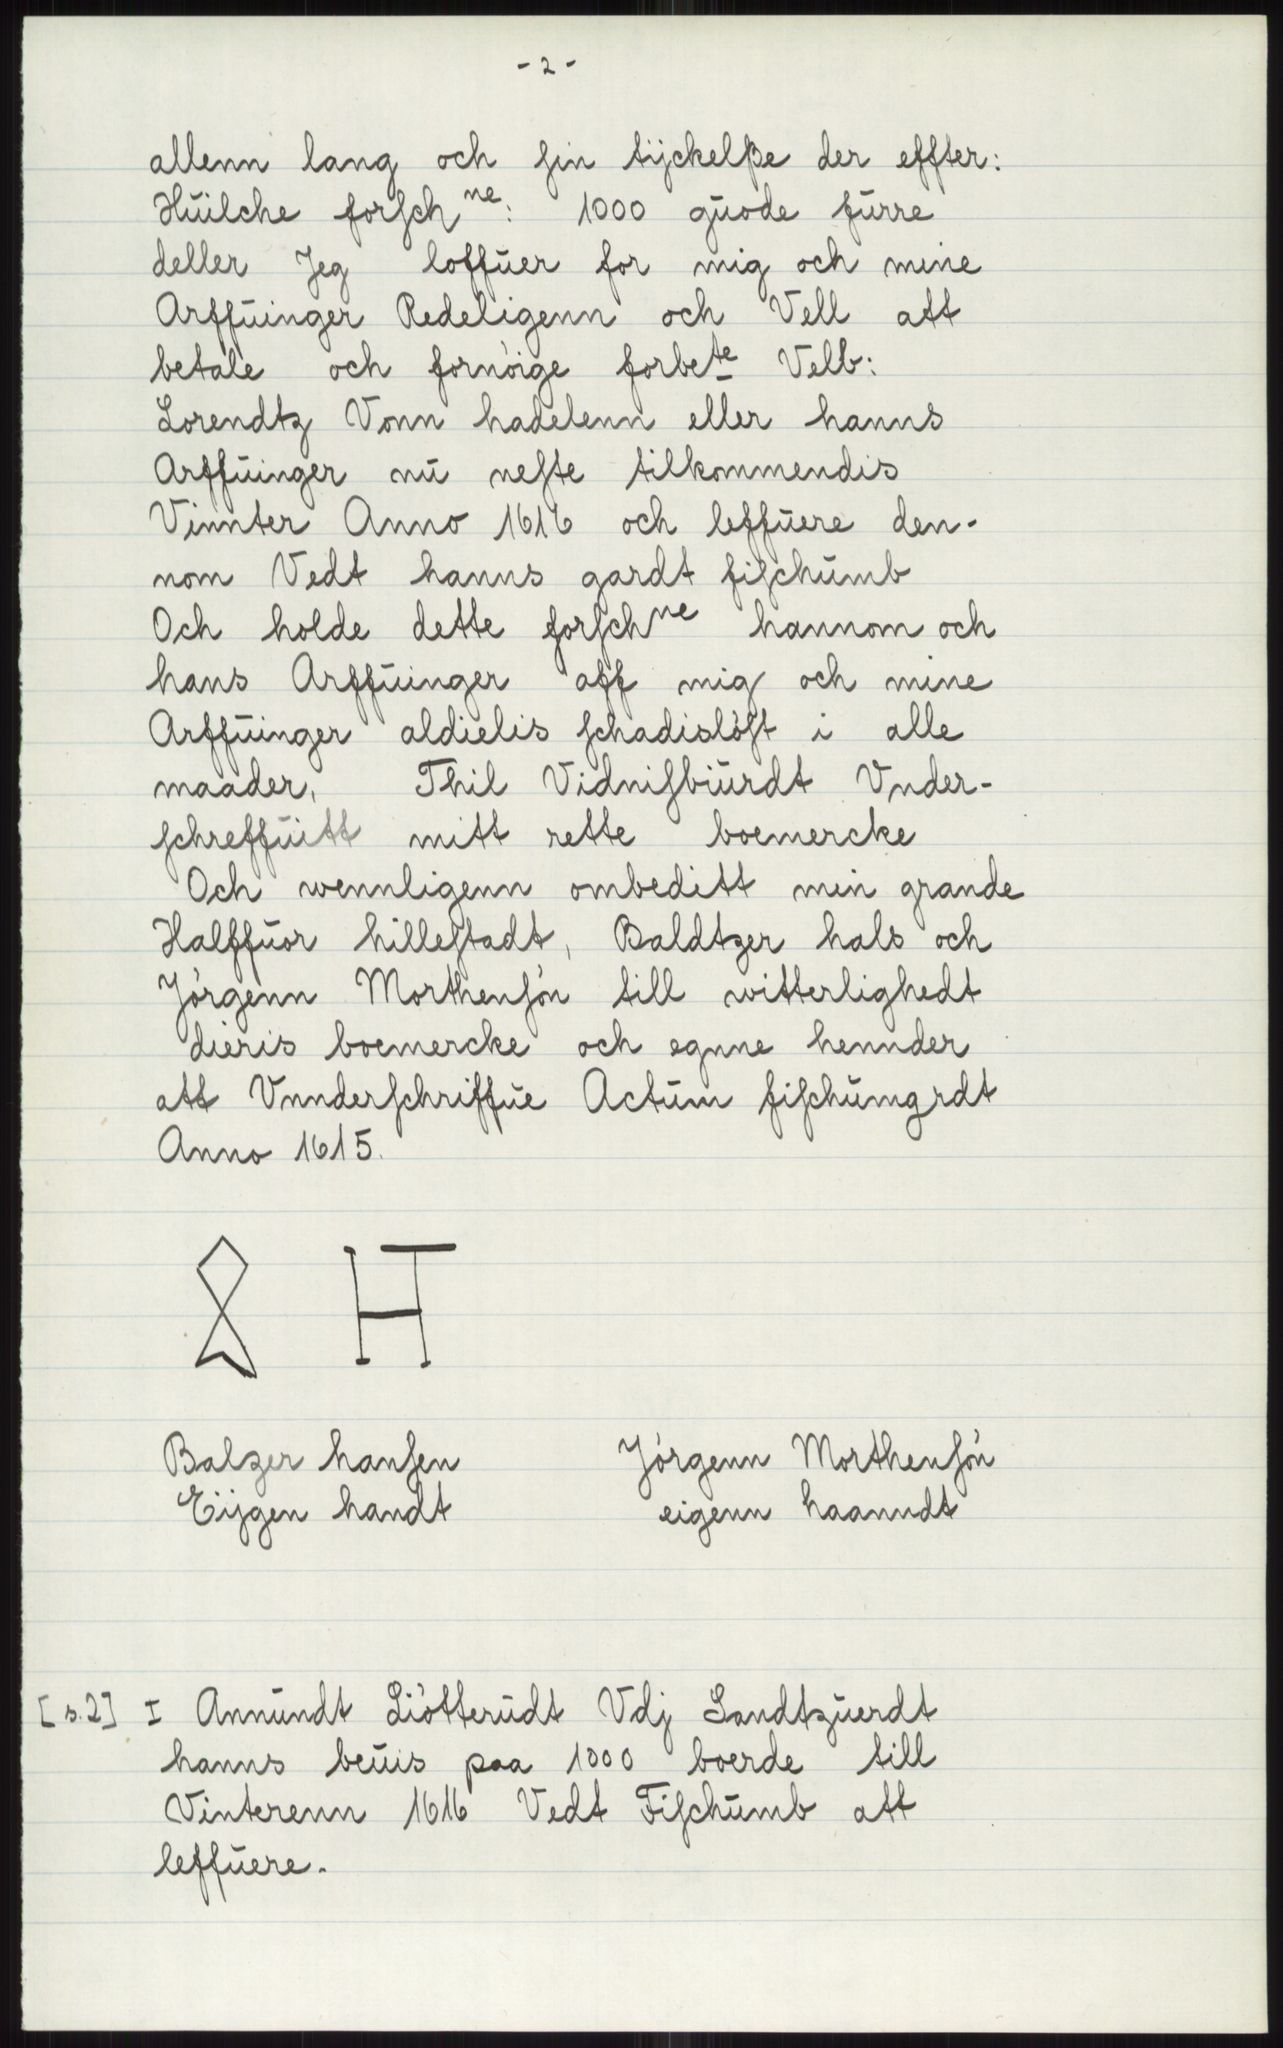 - 2 -
allenn lang och ſin tijckelße der effter:
Hŭilche forſch ne: 1000 gŭode fŭrre
deller Jeg loffŭer for mig och mine
Arffŭinger Redeligenn och Vell att
betale och fornöige forbete Velb:
Lorendtz Vonn hadelenn eller hanns
Arffŭinger nŭ neſte tilkommendis
Vinnter Anno 1616 och leffŭere den-
nom Vedt hanns gardt fiſchŭmb
Och holde dette forſchne hannom och
hans Arffŭinger aff mig och mine
Arffŭinger aldielis ſchadislöſt i alle
maader, Thil Vidniſbiŭrdt Vnder-
ſchreffŭitt mitt rette boemercke
Och wennligenn ombeditt min grande
Halffŭor hilleſtadt, Baldtzer hals och
Jörgenn Morthenſön till witterlighedt
dieris boemercke och egnne hennder
att Vnnderſchriffŭe Actŭm fiſchŭmgrdt
Anno 1615.
H T
Balzer hanſen Jörgenn Morthenſön
Eijgen handt eigenn haanndt
[s.2] I Annŭndt Liötterŭdt Vdj Sandtzŭerdt
hanns beŭis paa 1000 boerde till
Vinterenn 1616 Vedt Fiſchŭmb att
leffŭere.